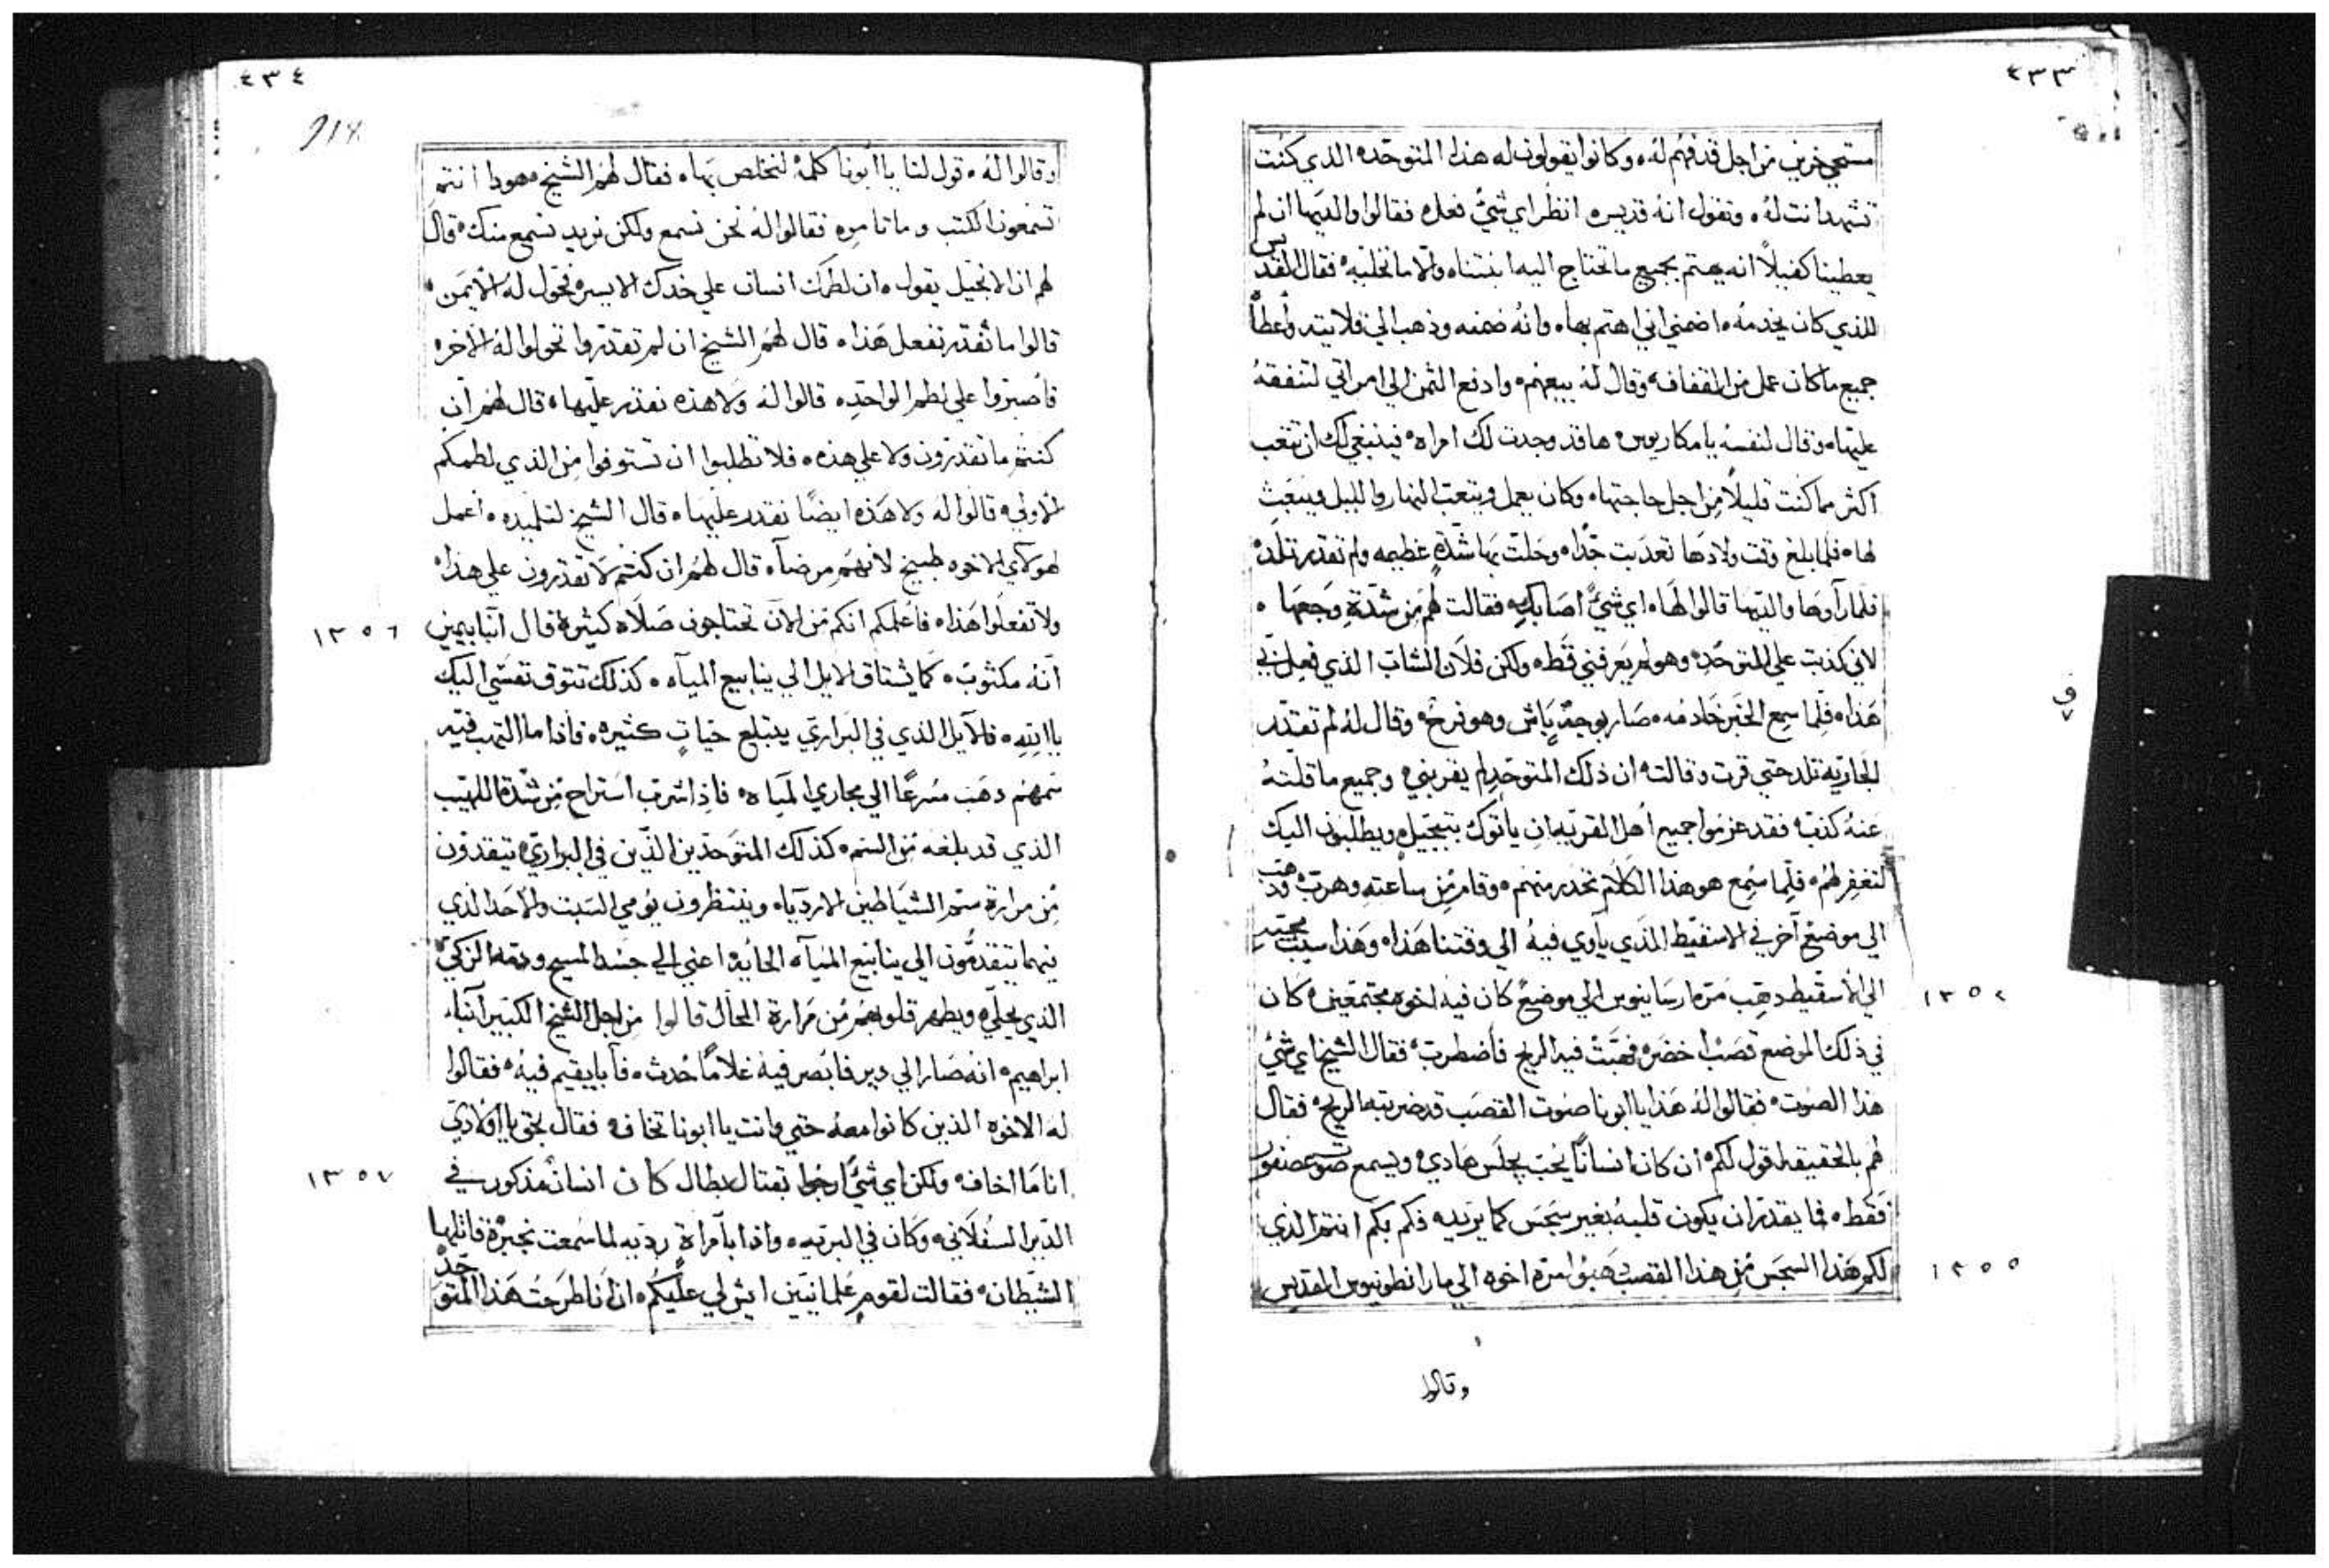 ٤٣٣
مستحي خزين من اجل قذفهم له، وكانوا يقولون له هذا المتوحد، الذي كنت
تشهد انت له، وتقول انه قديس، انظر اي شي فعل، فقالوا والديها ان لم
يعطينا كفيلاً انه يهتم بجميع ما تحتاج اليه ابنتنا، والا ما نخليه، فقال القديس
للذي كان يخدمه، اضمني اني اهتم بها، وانه ضمنه وذهب الي قلايته واعطاه
جميع ما كان عمل من القفاف، وقال له بيعهم، وادفع الثمن الي امراتي لتنفقه
عليها، وقال لنفسه يا مكاريوس، ها قد وجدت لك امراه، فينبغي لك ان تتعب
اكثر مما كنت قليلاً من اجل حاجتها، وكان يعمل ويتعب النهار والليل ويبعث
لها، فلما بلغ وقت ولادها تعذبت جدًا، وحلت بها شدة عظيمه ولم تقدر تلد،
فلما رآوها والديها قالوا لها، اي شيً اصابك، فقالت لهم من شدة وجعها،
لاني كذبت علي المتوحد، وهو لم يعرفني قط، ولكن فلان الشاب الذي فعل بي
هذا، فلما سمع الخبر خادمه، صار بوجهٍ باش وهو فرح، وقال له لم تقدر
الجاريه تلد حتي قرت وقالت، ان ذلك المتوحد لم يقربني، وجميع ما قلته
عنه كذب، فقد عزموا جميع اهل القريه ان ياتوك بتبجيل، ويطلبون اليك
لتغفر لهم، فلما سمع هو هذا الكلام تحذر منهم، وقام من ساعته وهرب وذهب
الي موضع آخر في الاسقيط الذي يآوي فيه الي وقتنا هذا، وهذا سبب مجيه
الي الاسقيط ذهب مرة ارسانيوس الي موضع كان فيه اخوه مجتمعين، كان
١٣٥٤
في ذلك الموضع قصب اخضر، فهبت فيه الريح فاضطرب، فقال الشيخ اي شي
هذا الصوت، فقالوا له هذا يا ابونا صوت القصب قد ضربته الريح، فقال
لهم بالحقيقه اقول لكم، ان كان انسانًا يحب يجلس هادي، ويسمع صوت عصفور
فقط، فما يقدر ان يكون قلبه بغير سجس كما يريد، فكم بكم انتم الذي
لكم هذا السجس من هذا القصب ذهبوا مرة اخوه الي مار انطونيوس القديس
١٣٥٥
وقالوا
٤٣٤
وقالوا له، قول لنا يا ابونا كلمة لنخلص بها، فقال لهم الشيخ، هودا انتم
تسمعون الكتب وما تامر، فقالوا له نحن نسمع ولكن نريد نسمع منك، قال
لهم ان الانجيل يقول، ان لطمك انسان علي خدك الايسر، فحول له الايمن،
قالوا ما نقدر نفعل هذا، قال لهم الشيخ ان لم تقدروا تحولوا له الاخر،
فاصبروا علي لطم الواحد، قالوا له ولا هذه نقدر عليها، قال لهم ان
كنتم ما تقدرون ولا علي هذه، فلا تطلبوا ان تستوفوا من الذي لطمكم
الاولي، قالوا له ولا هذه ايضًا نقدر عليها، قال الشيخ لتلميذه، اعمل
لهولآي الاخوه طبيخ لانهم مرضآ، قال لهم ان كنتم لا تقدرون علي هذا،
ولا تفعلوا هذا، فاعلمكم انكم من الان تحتاجون صلاه كثيرة قال آنبا بيمين
١٣٥٦
انه مكتوب، كما يشتاق الايل الي ينابيع المياه، كذلك تتوق نفسي اليك
يا الله، فالآيل الذي في البراري يبتلع حيات كثيره، فاذا ما التهب فيه
سمهم ذهب مسرعًا الي مجاري المياه، فاذا شرب استراح من شدة اللهيب
الذي قد بلغه من السم، كذلك المتوحدين الذين في البراري، يتقدون
من مرارة سم الشياطين الاردياه، وينتظرون يومي السبت والاحد الذي
فيهما يتقدمون الي ينابيع المياه الحايه، اعني الي جسد المسيح ودمه الزكي
الذي يحليه ويطهر قلوبهم من مرارة المحال قالوا من اجل الشيخ الكبير آنبا
ابراهيم، انه صار الي دير فابصر فيه غلامًا حدث، فآبا يقيم فيه، فقالوا
له الاخوه الذين كانوا معه حتي وانت يا ابونا تخاف، فقال بحق يا اولادي
انا ما اخاف، ولكن اي شيً ارجوا بقتال بطال كان انسان مذكور في
١٣٥٧
الدير السفلاني، وكان في البريه، واذا بآمراة رديه لما سمعت بخبره فاتلها
الشيطان، فقالت لقوم علمانيين ايش لي عليكم، ان انا طرحت هذا المتوحد